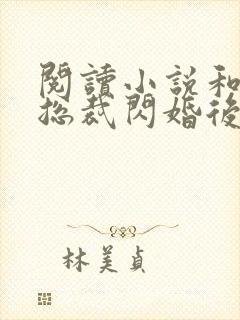 閱讀小說和
總裁閃婚後
林美貞